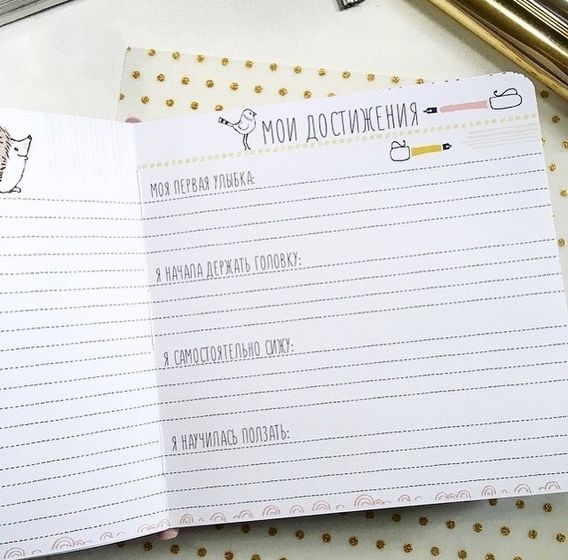 МОИ ДОСТИЖЕНИЯ
МОЯ ПЕРВАЯ УЛЫБКА:
Я НАЧАЛА ДЕРЖАТЬ ГОЛОВКУ:
Я САМОСТОЯТЕЛЬНО СИЖУ:
Я НАУЧИЛАСЬ ПОЛЗАТЬ: